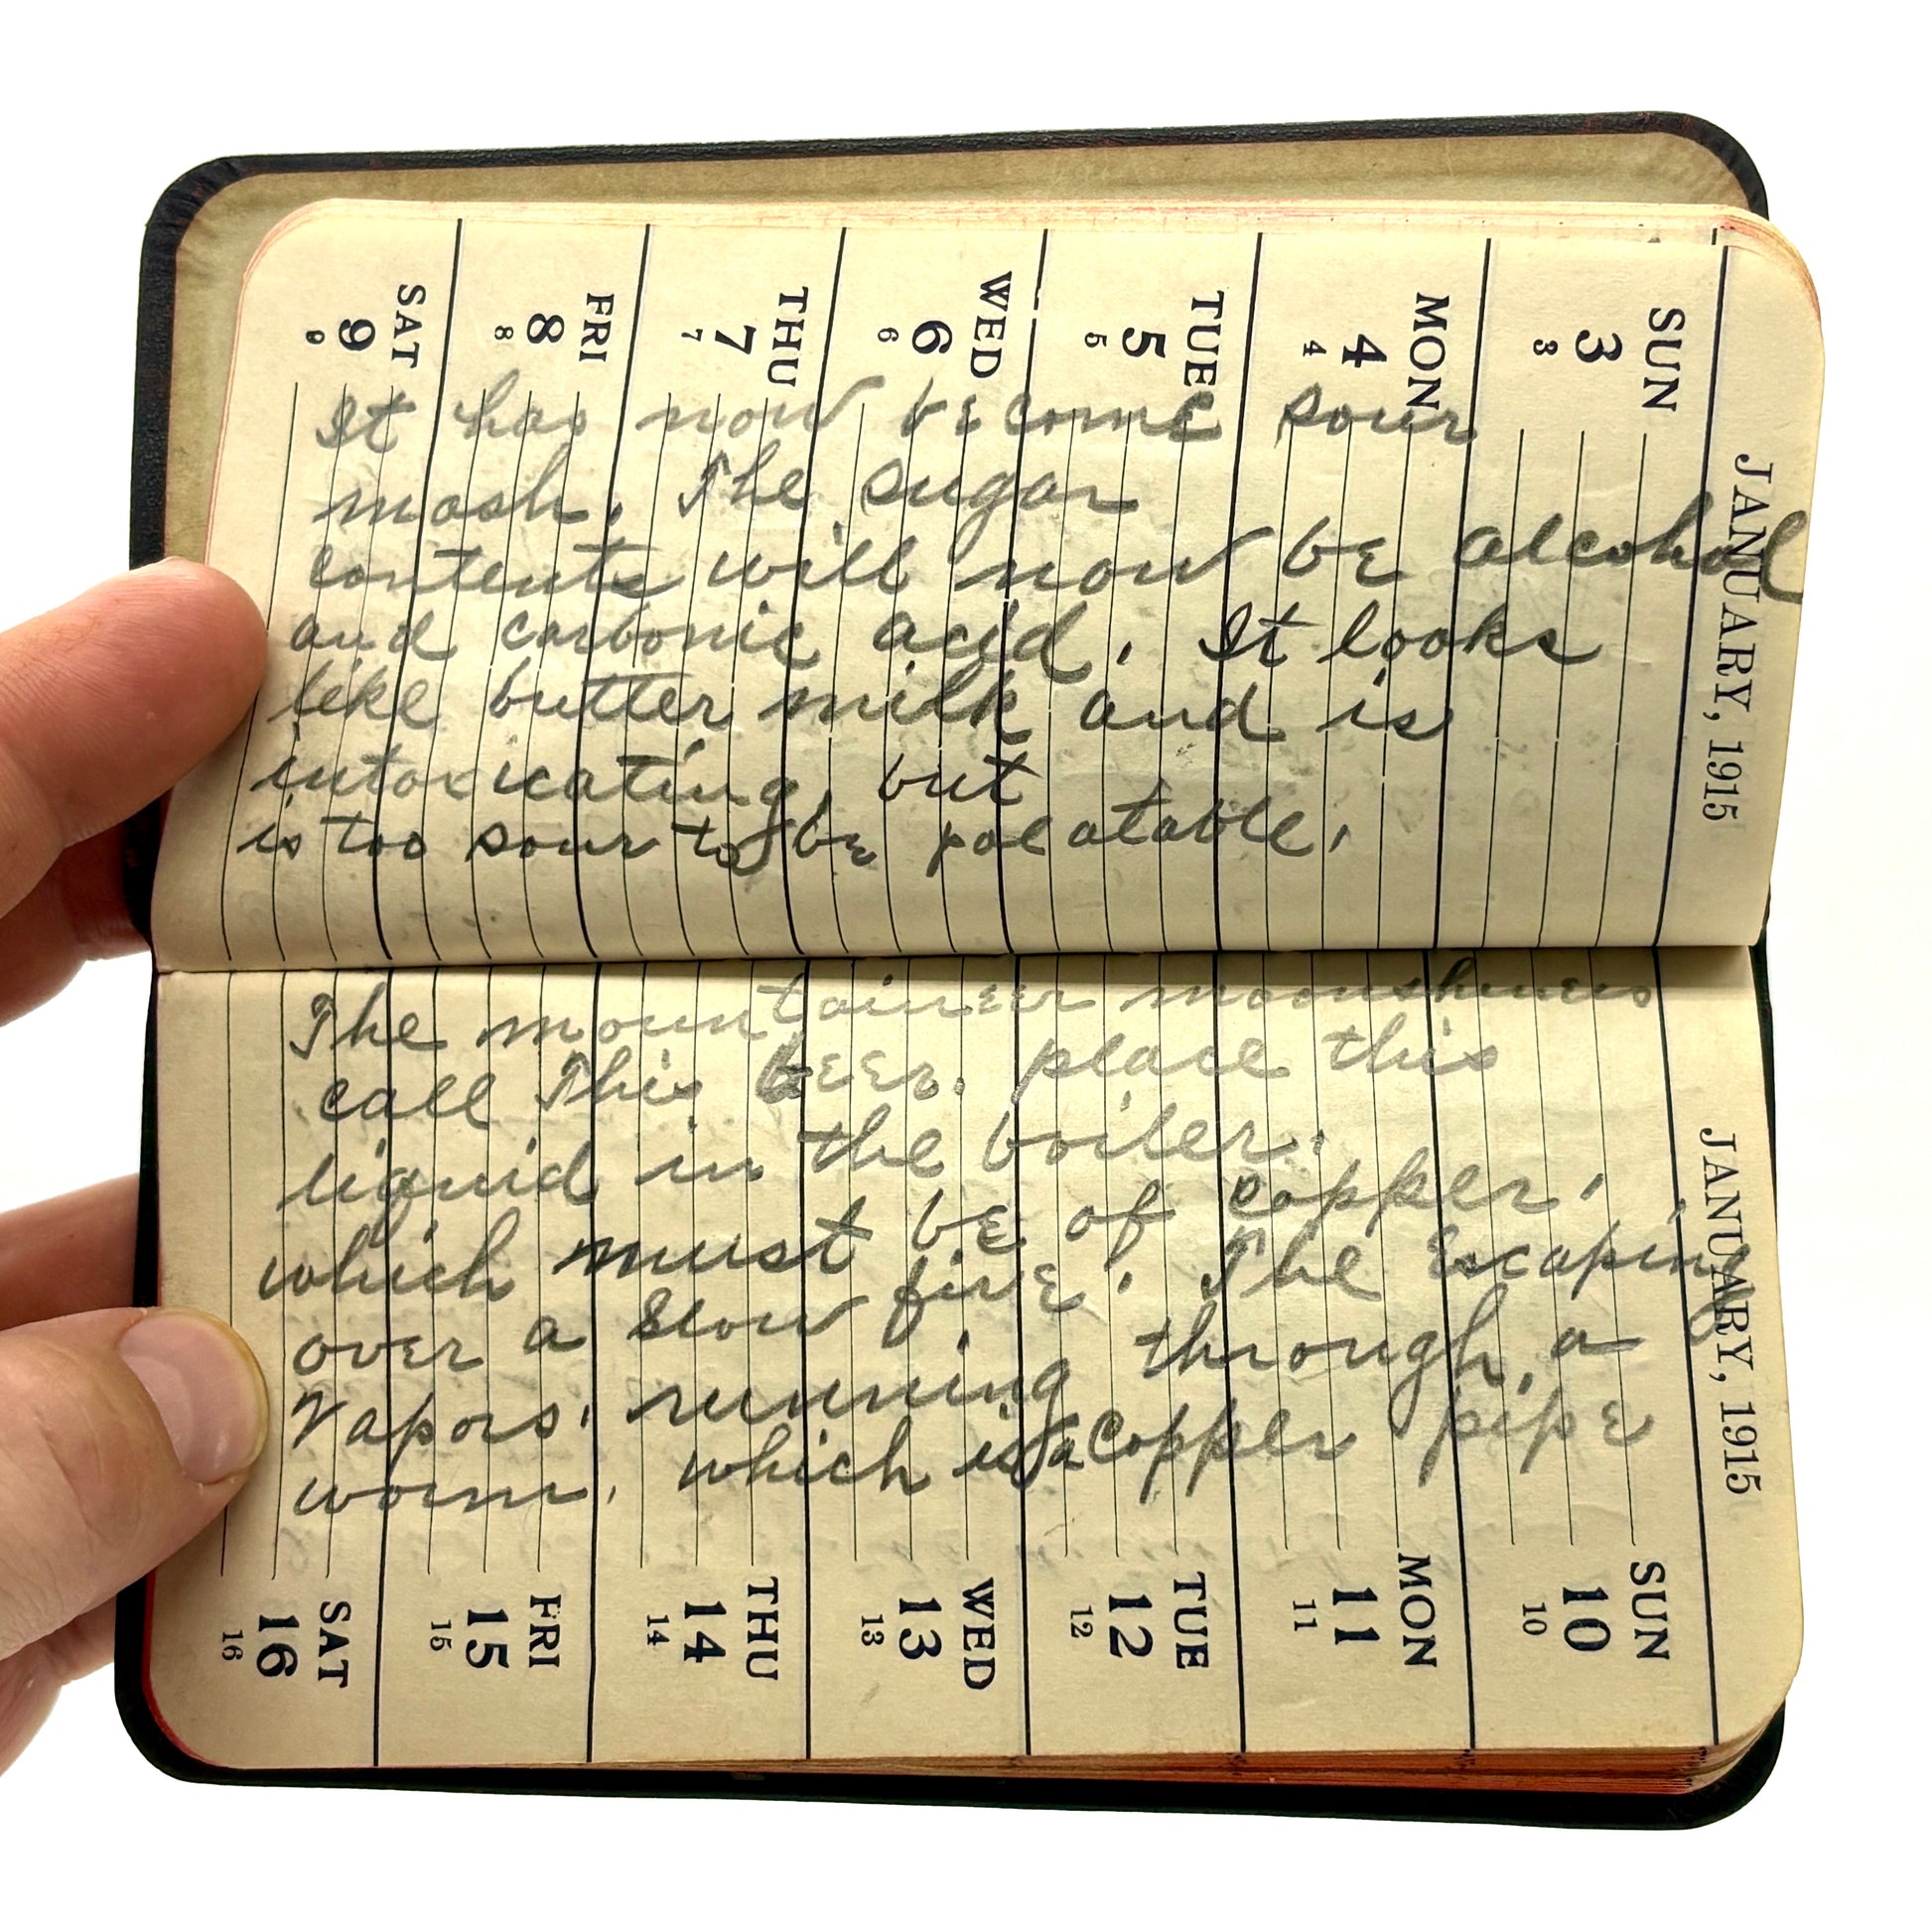 JANUARY, 1915
SUN 3 3
MON 4 4
TUE 5 5
WED 6 6
THU 7 7
FRI 8 8
SAT 9 9
It has now become sour
mash. The sugar
contents will now be alcohol
and carbonic acid. It looks
like butter milk and is
intoxicating, but
is too sour to be palatable.
The mountaineer moonshiners
call This beer. place this
liquid in the boiler.
which must be of copper.
over a slow fire. The Escaping
Vapors, running through a
worm. which is a Copper pipe
JANUARY, 1915
SUN 10 10
MON 11 11
TUE 12 12
WED 13 13
THU 14 14
FRI 15 15
SAT 16 16